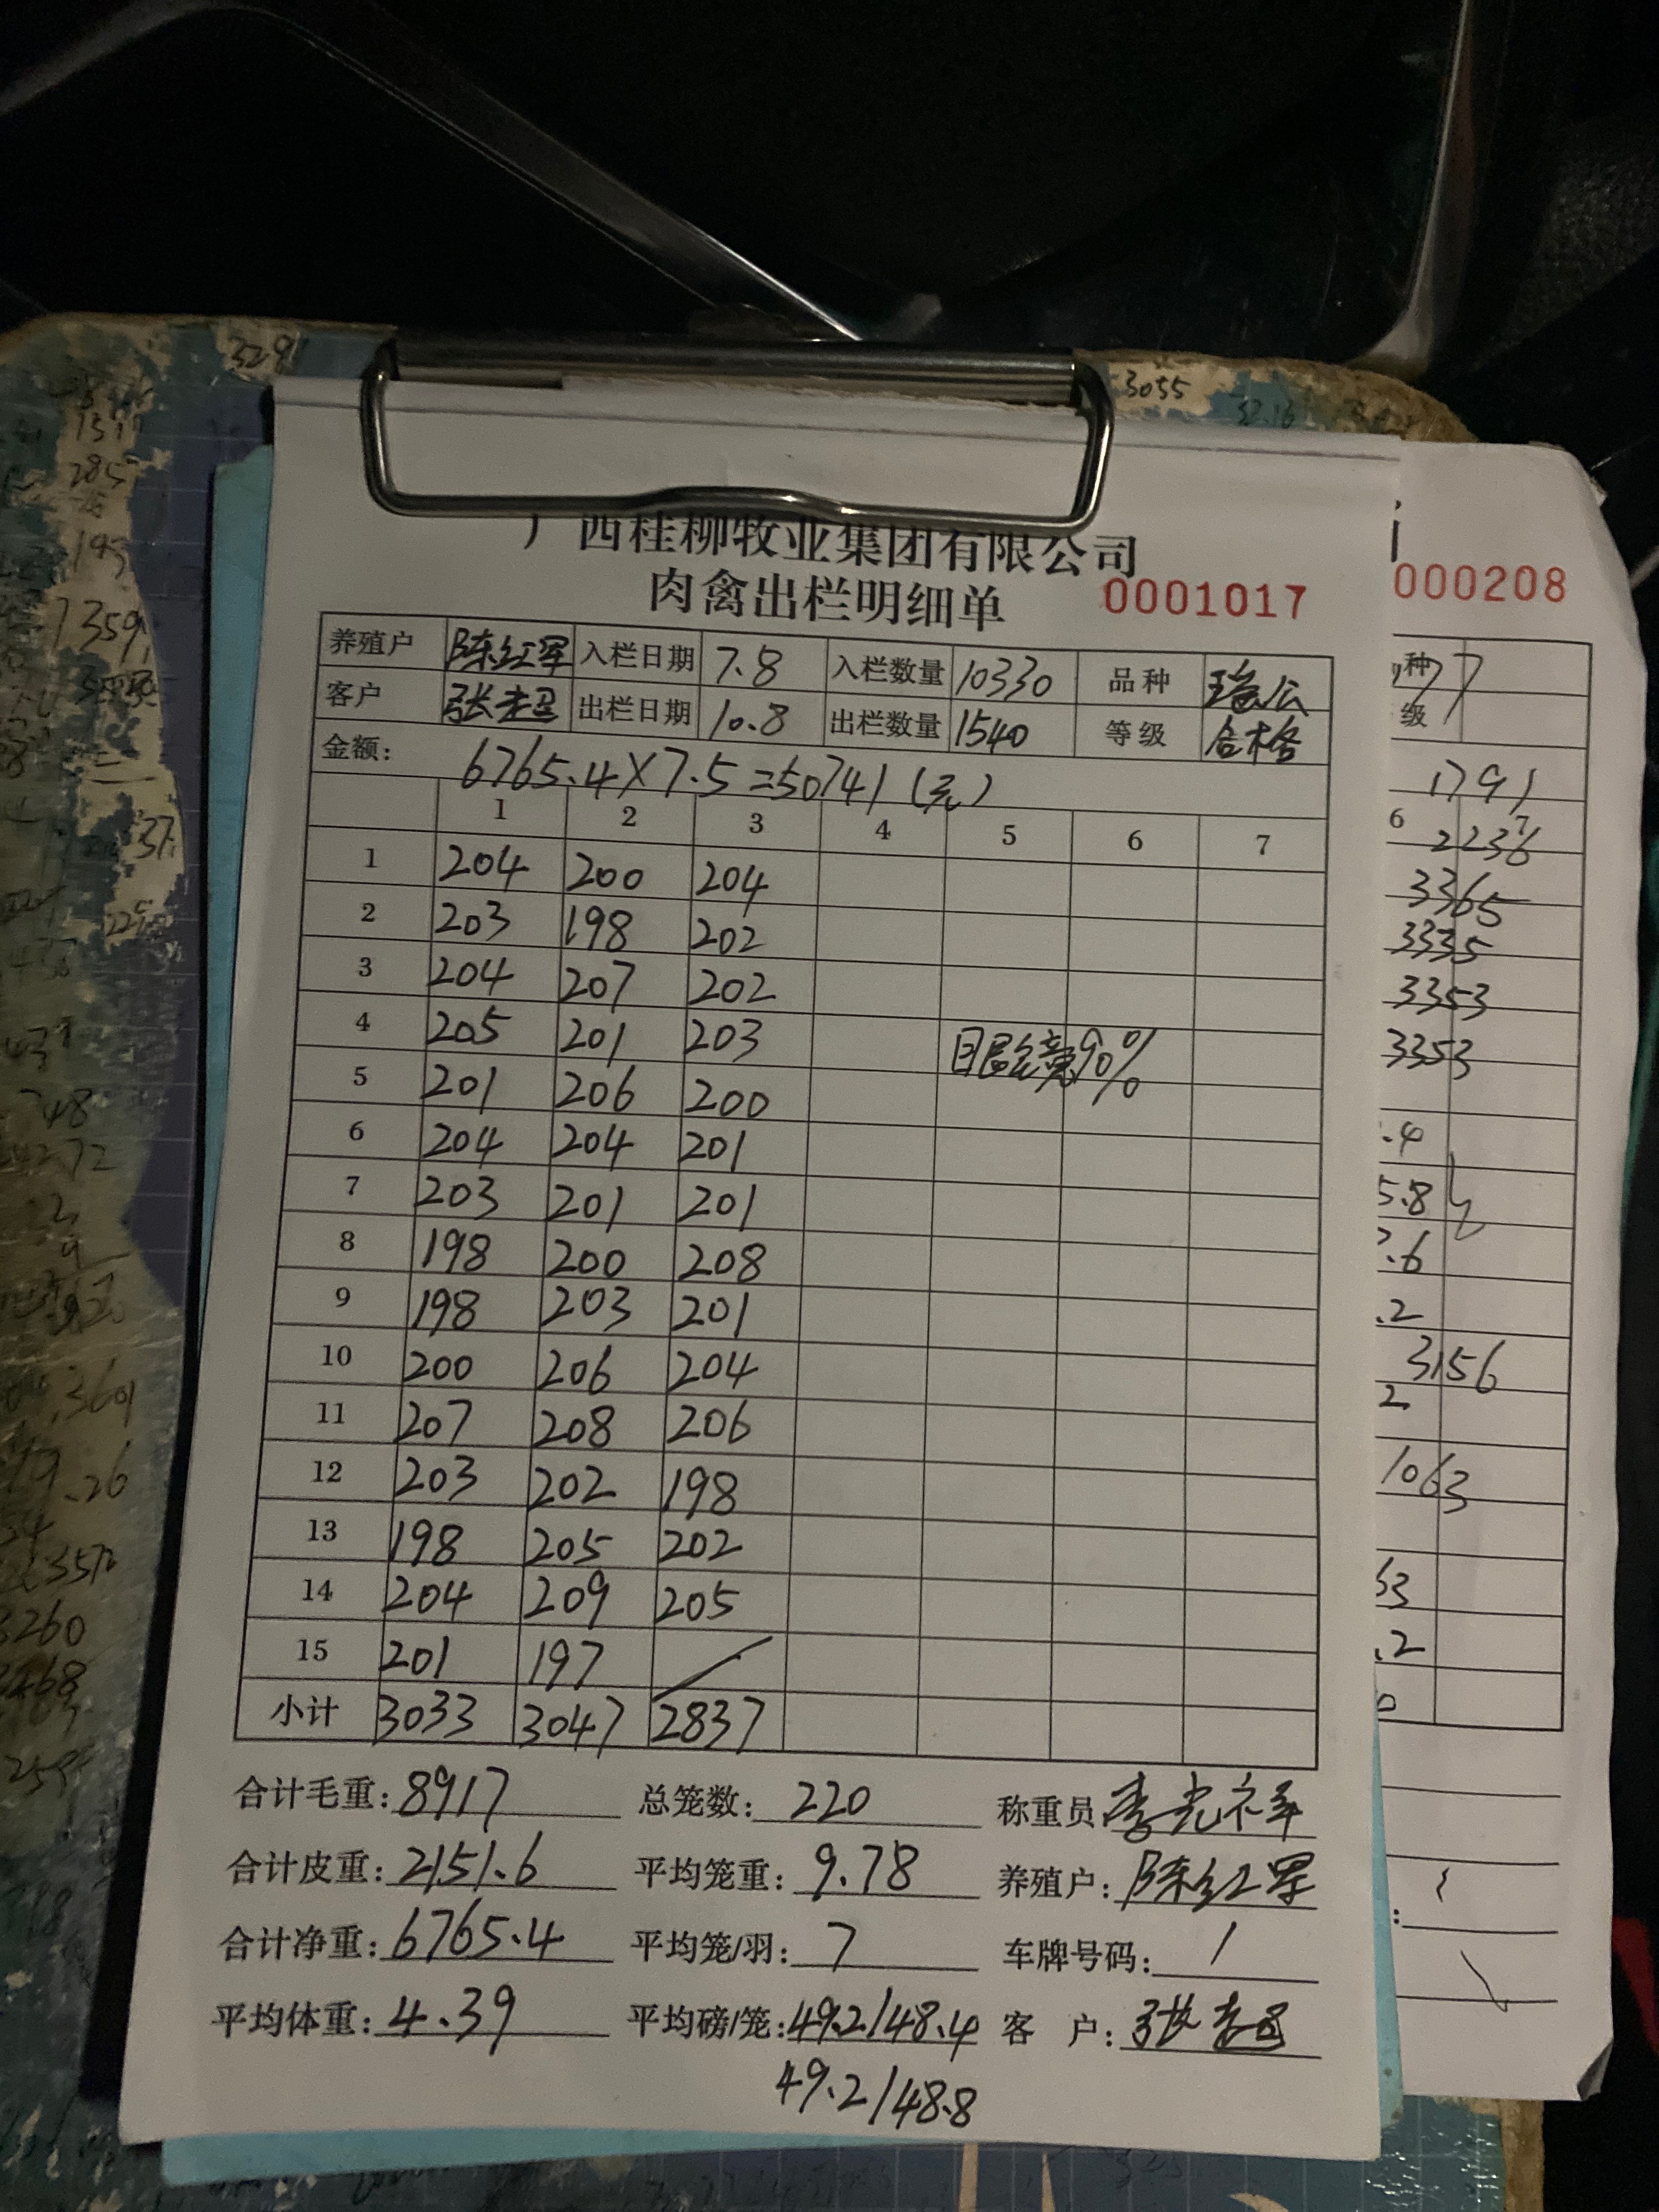 广西桂柳牧业集团有限公司
肉禽出栏明细单 0001017
养殖户 陈红军 入栏日期 7.8 入栏数量 10330 品种 瑶公
客户 张老四 出栏日期 10.8 出栏数量 1540 等级 合格
金额: 6765.4×7.5=50741(元)
1 2 3 4 5 6 7
1 204 200 204
2 203 198 202
3 204 207 202
4 205 201 203
5 201 206 200 90%
6 204 204 201
7 203 201 201
8 198 200 208
9 198 203 201
10 200 206 204
11 207 208 206
12 203 202 198
13 198 205 202
14 204 209 205
15 201 197 /
小计 3033 3047 2837
合计毛重: 8917 总笼数: 220 称重员 李光祥
合计皮重: 2151.6 平均笼重: 9.78 养殖户: 陈红军
合计净重: 6765.4 平均笼/羽: 7 车牌号码: /
平均体重: 4.39 平均磅/笼: 49.2/48.4 客 户: 张
49.2/48.8
000208
种
级
1791
6 7
2236
3365
3335
3353
3353
.4
5.8
.6
.2
3156
2
1063
63
.2
3291
3055